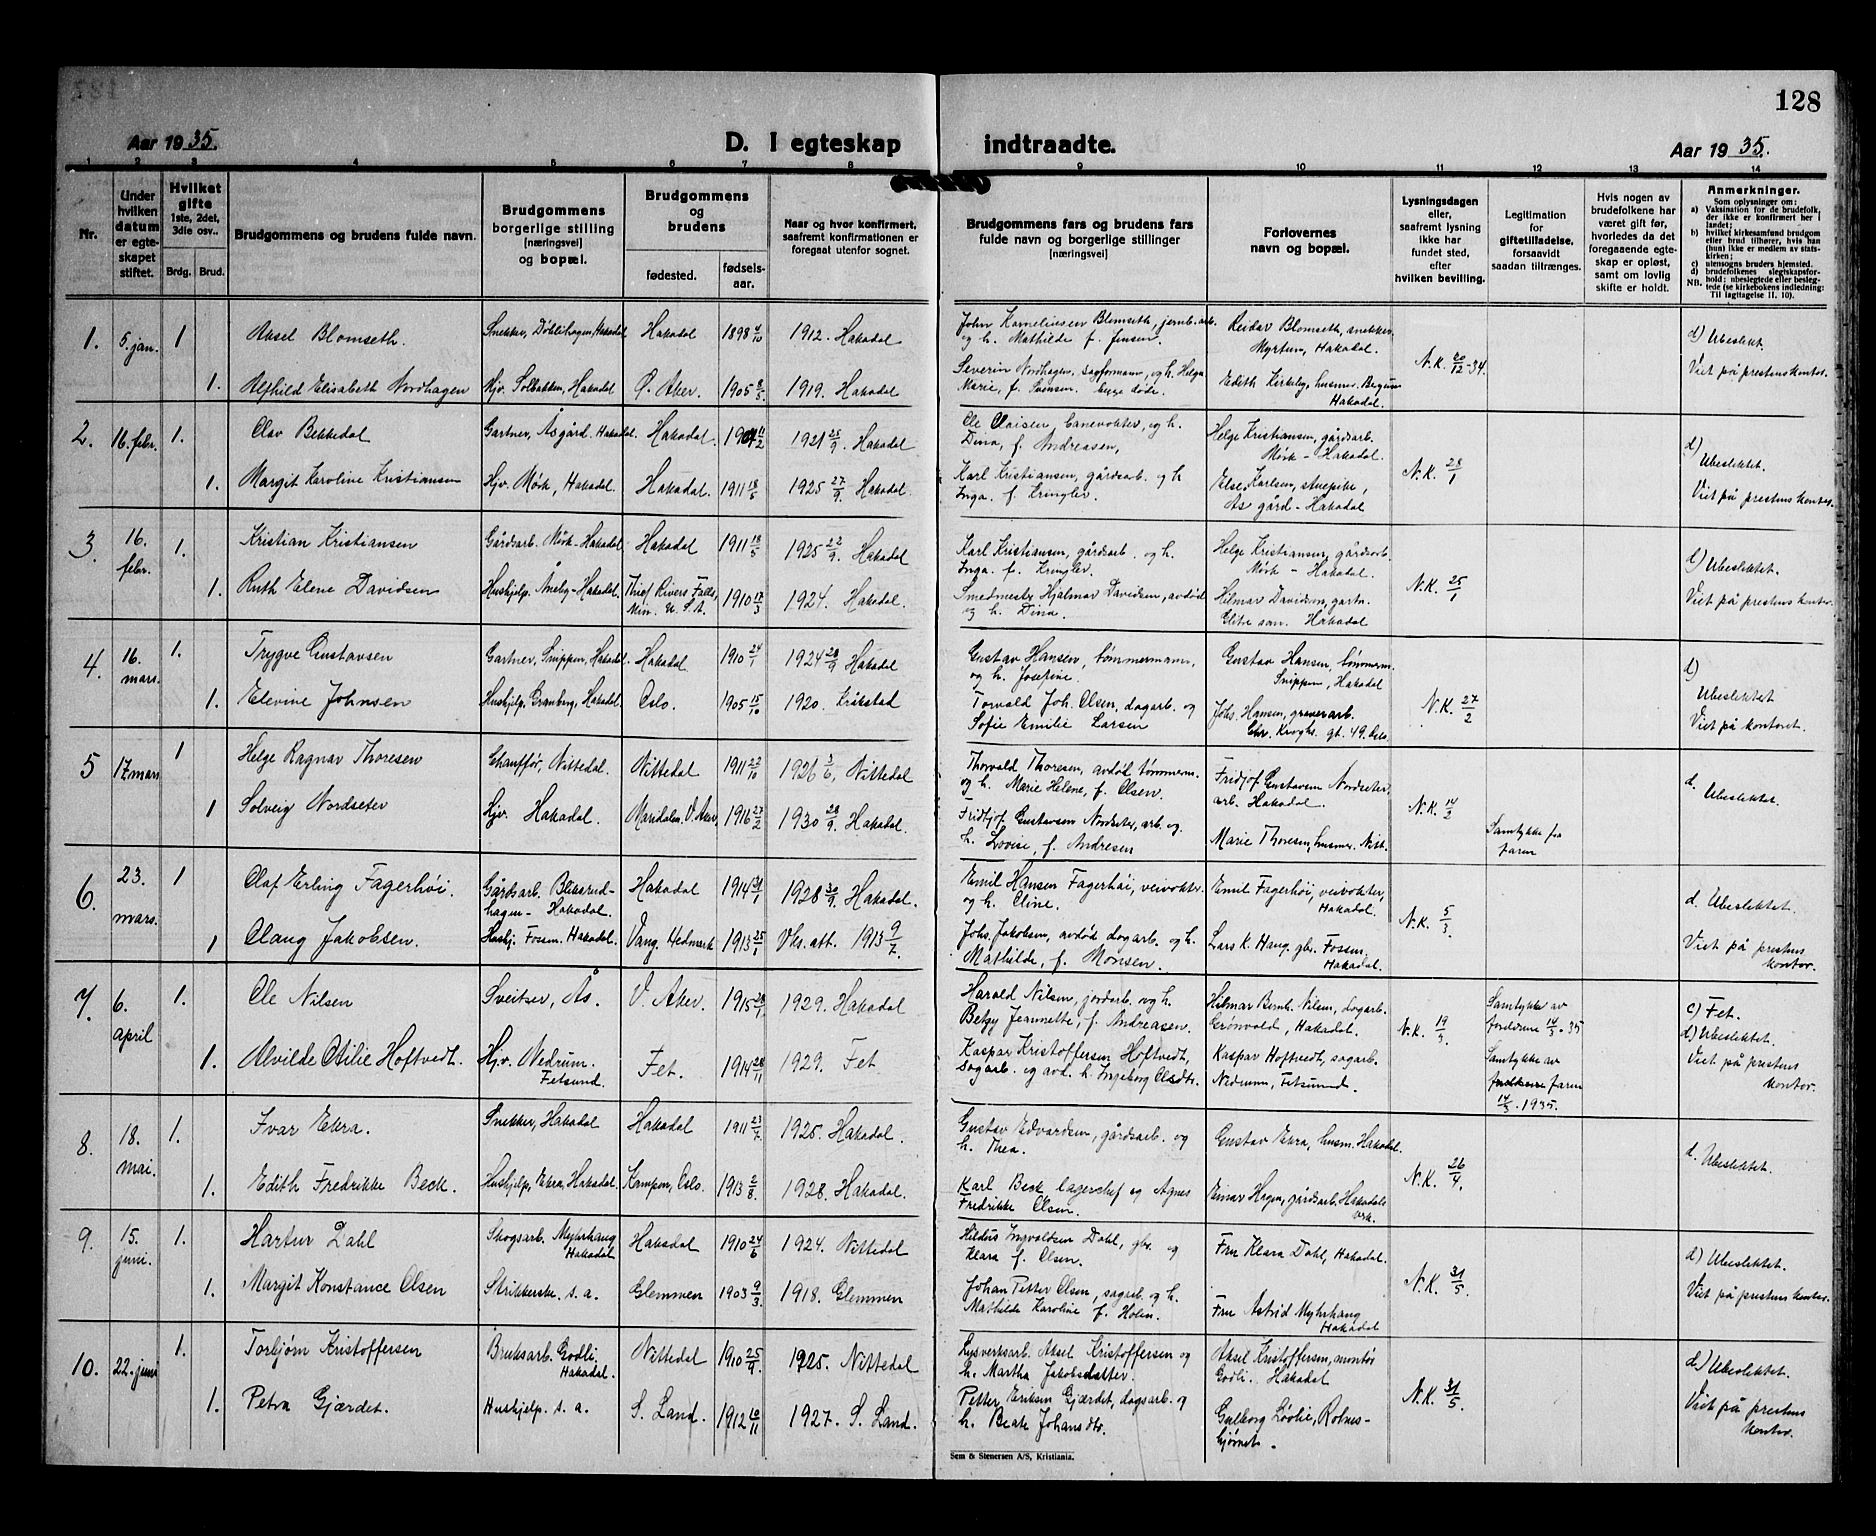 128
Aar 1935.
D. I egteskap indtraadte.
Aar 1935.
1 2 3 4 5 6 7 8 9 10 11 12 13 14
Nr.
Under hvilken datum er egteskapet stiftet.
Hvilket gifte 1ste, 2det, 3die osv..
Brdg. Brud.
Brudgommens og brudens fulde navn.
Brudgommens borgerlige stilling [næringsvei] og bopæl.
Brudgommens og brudens
fødested. fødsels-aar.
Naar og hvor konfirmert, saafremt konfirmationen er foregaat utenfor sognet.
Brudgommens fars og brudens fars fulde navn og borgerlige stillinger [næringsvei]
Forlovernes navn og bopæl.
Lysningsdagen eller, saafremt lysning ikke har fundet sted, efter hvilken bevilling.
Legitimation for giftetilladelse, forsaavidt saadan tiltrænges.
Hvis nogen av brudefolkene har været gift før, hvorledes da det foregaaende egteskap er opløst, samt om lovlig skifte er holdt.
Anmerkninger.
Som oplysninger om:
a) Vaksination for de brudefolk, der ikke er konfirmert her i landet;
b) hvilket kirkesamfund brudgom eller brud tilhører, hvis han (hun) ikke er medlem av statskirken;
c) utensogns bruders hjemsted.
d) brudefolkenes slegtskapsforhold; ubeslegtede eller beslegtede (se kirkebokens indledning: Til iagttagelse II. 10).
NB.
1. 5. jan. 1 Aksel Blomseth. Snekker, Døblihagen, Hakadal Hakadal 1898 4/10 1912. Hakadal
John Korneliusen Blomseth, jernb.arb. og h. Mathilde f. Jensen. Reidar Blomseth, snekker, Myrtun, Hakadal. N.K. 20/12-34. d) Ubeslekt.
1. Alfhild Elisabeth Nordhagen Hjv. Solbakken, Hakadal Ø. Aker. 1905 8/5 1919. Hakadal
Severin Nordhagen, sagformann, og h. Helga Marie, f. begge døde. Edith Kirkeby, husmor Hakadal. Viet på prestens kontor.
2. 16. febr. 1. Olav Bekkedal Gartner, Åsgård. Hakadal. Hakadal. 1904 11/2 1921 25/9 Hakadal
Ole Olaisen, banevokter, og h. Dina, f. Andreasen, Helge Kristiansen, gårdsarb. Mørk - Hakadal. N.K. 28/1 d) Ubeslektet.
1. Margit Karoline Kristiansen Hjv. Mørk, Hakadal. Hakadal. 1911 18/6 1925 27/9 Hakadal.
Karl Kristiansen, gårdsarb. og h Inga. f. Kringler. Else Karlsen, stuepike, Ås gård - Hakadal Viet på prestens kontor.
3. 16. febr. 1. Kristian Kristiansen Gårdsarb. Mørk - Hakadal. Hakadal 1911 18/5 1925 22/9. Hakadal
Karl Kristiansen, gårdsarb. og h. Inga. f. Kringler. Helge Kristiansen, gårdsarb. Mørk - Hakadal. N.K. 25/1 d) Ubeslektet.
1. Ruth Elene Davidsen Hushjelp. Åneby - Hakadal. Thief Rivers Falls, Min. U.S.A. 1910 17/3 1924. Hakadal.
Smedmester Hjalmar Davidsen, avdød og h. Dina. Hilmar Davidsen, gartn. Glitre san. Hakadal Viet på prestens kontor.
4. 16. mars. 1. Trygve Gustavsen Gartner, Snippen, Hakadal. Hakadal 1910 24/1 1924 28/9 Hakadal
Gustav Hansen, tømmermann, og h. Josefine. Gustav Hansen, tømmerm. Snippen, Hakadal N.K. 27/2 d) Ubeslektet
1. Elevine Johnsen Hushjelp, Granberg, Hakadal. Oslo. 1905 15/10 1920. Kråkstad
Torvald Joh. Olsen, dagarb. og Sofie Emilie Larsen Johs. Hansen, graverarb. Chr. Kroghs gt. 49. Oslo Viet på kontoret.
5 17. mars 1 Helge Ragnar Thoresen Chauffør, Nittedal. Nittedal 1911 22/10 1926 3/6. Nittedal
Thorvald Thoresen, avdød tømmerm. og h. Marie Helene, f. Olsen. Fridjof Gustavsen Nordseter, arb. Hakadal. N.K. 14/2 d. Ubeslektet.
1 Solveig Nordseter Hjv. Hakadal. Maridalen. V. Aker. 1916 27/2 1930 28/9. Hakadal.
Fridtjof Gustavsen Nordseter, arb. og. h. Lovise, f. Andresen Marie Thoresen, husmor. Nitt. Samtykke fra faren
6. 23. mars. 1 Olaf Erling Fagerhøi. Gårdsarb. Bliksrudhagen - Hakadal. Hakadal 1914 21/1 1928 30/9. Hakadal.
Emil Hansen Fagerhøi, veivokter. og h. Oline. Emil Fagerhøi, veivokter, Hakadal. N.K. 5/3. d. Ubeslektet.
1 Olaug Jakobsen. Hushj. Fossen. Hakadal. Vang. Hedmark 1913 25/1 Vks. att. 1913 9/7.
Johs. Jakobsen, avdød dagarb. og h. Mathilde, f. Monsen. Lars K. Haug. gbr. Fossen, Hakadal. Viet på prestens kontor.
7. 6. april 1. Ole Nilsen Sveitser, Ås. V. Aker. 1915 28/1 1929. Hakadal
Harald Nilsen, jordarb. og h. Betzy Jeannette, f. Andreasen. Hilmar Bernh. Nilsen, dagarb. Grønvold, Hakadal. N.K. 19/3. Samtykke av foreldrene 14/3-35 c) Fet. d) Ubeslektet.
1. Alvilde Otilie Hoftvedt. Hjv. Nedrum. Fetsund. Fet. 1914 28/11 1929. Fet
Kaspar Kristoffersen Hoftvedt, sagarb. og avd. h. Ingeborg Olsdtr. Kaspar Hoftvedt, sagarb. Nedrum, Fetsund. Samtykke av faren 14/3. 1935. Viet på prestens kontor.
8. 18. mai. 1. Ivar Ekra. Snekker, Hakadal Hakadal 1911 23/7 1925. Hakadal.
Gustav Edvardsen, gårdsarb. og h. Thea. Gustav Ekra, husm. Hakadal. N.K. 26/4. d. Ubeslektet.
1. Edith Fredrikke Beck. Hushjelp, Ekra, Hakadal. Kampen, Oslo. 1913 2/8. 1928. Hakadal.
Karl Beck lagerchef og Agnes Fredrikke Olsen. Einar Hagen, gårdsarb. Hakadals verk.
9. 15. juni. 1. Hartur Dahl Skogsarb. Myhrhaug Hakadal Hakadal 1910 24/6 1924. Nittedal
Hildus Ingvaldsen Dahl, gbr. og Klara f. Olsen. Fru Klara Dahl, Hakadal. N.K. 31/5. d) Ubeslektet.
1. Margit Konstance Olsen Strikkerske. s. a. Glemmen 1903 9/3. 1918. Glemmen
Johan Petter Olsen, sagarb. og h. Mathilde Karoline f. Holm. Fru Astrid Myhrhaug Hakadal Viet på prestens kontor.
10. 22. juni 1. Torbjørn Kristoffersen Bruksarb. Godli. Hakadal. Nittedal 1910 25/9. 1925. Nittedal
Lysverksarb. Aksel Kristoffersen og h. Martha Jakobsdatter. Aksel Kristoffersen, montør Godli. Hakadal N.K. 31/5. d) Ubeslektet.
1. Petra Gjærdet. Hushjelp. s. a. S. Land. 1912 10/11 1927. S. Land.
Petter Eriksen Gjærdet, dagsarb. og h. Beate Johansdtr. Gulborg Løvlie, Viet på prestens kontor.
Sem & Stenersen A/S, Kristiania.